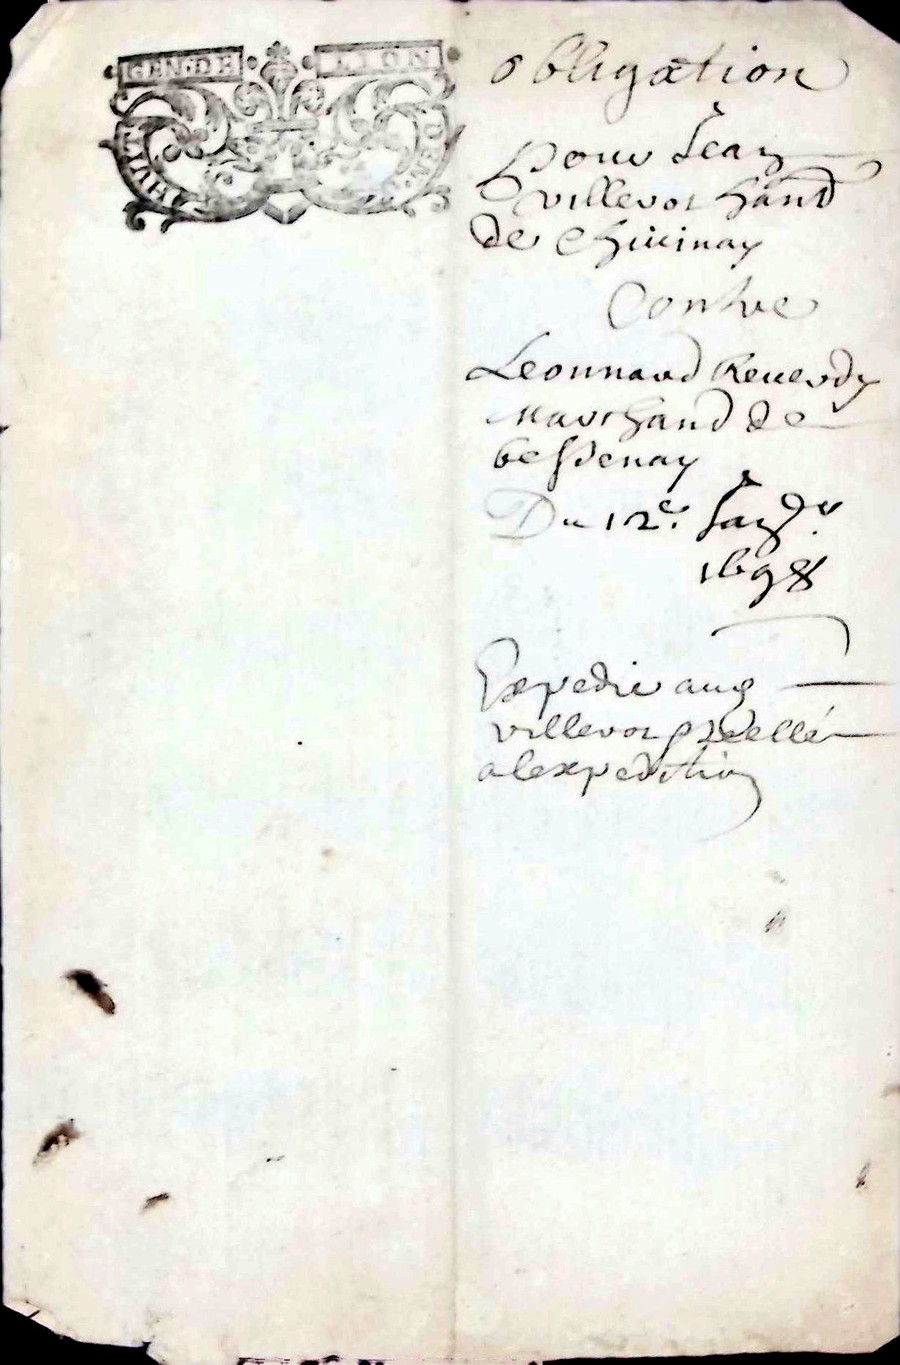 GEN·DE LION
HUIT DEN·RS
obligation
Pour Jean
villevot hand
de Chivinay
Contre
Leonnard Reverdy
Marchand de
bessenay
Du 12e. Jan
1698
Expedie aud
villevot scellé
alexpedition